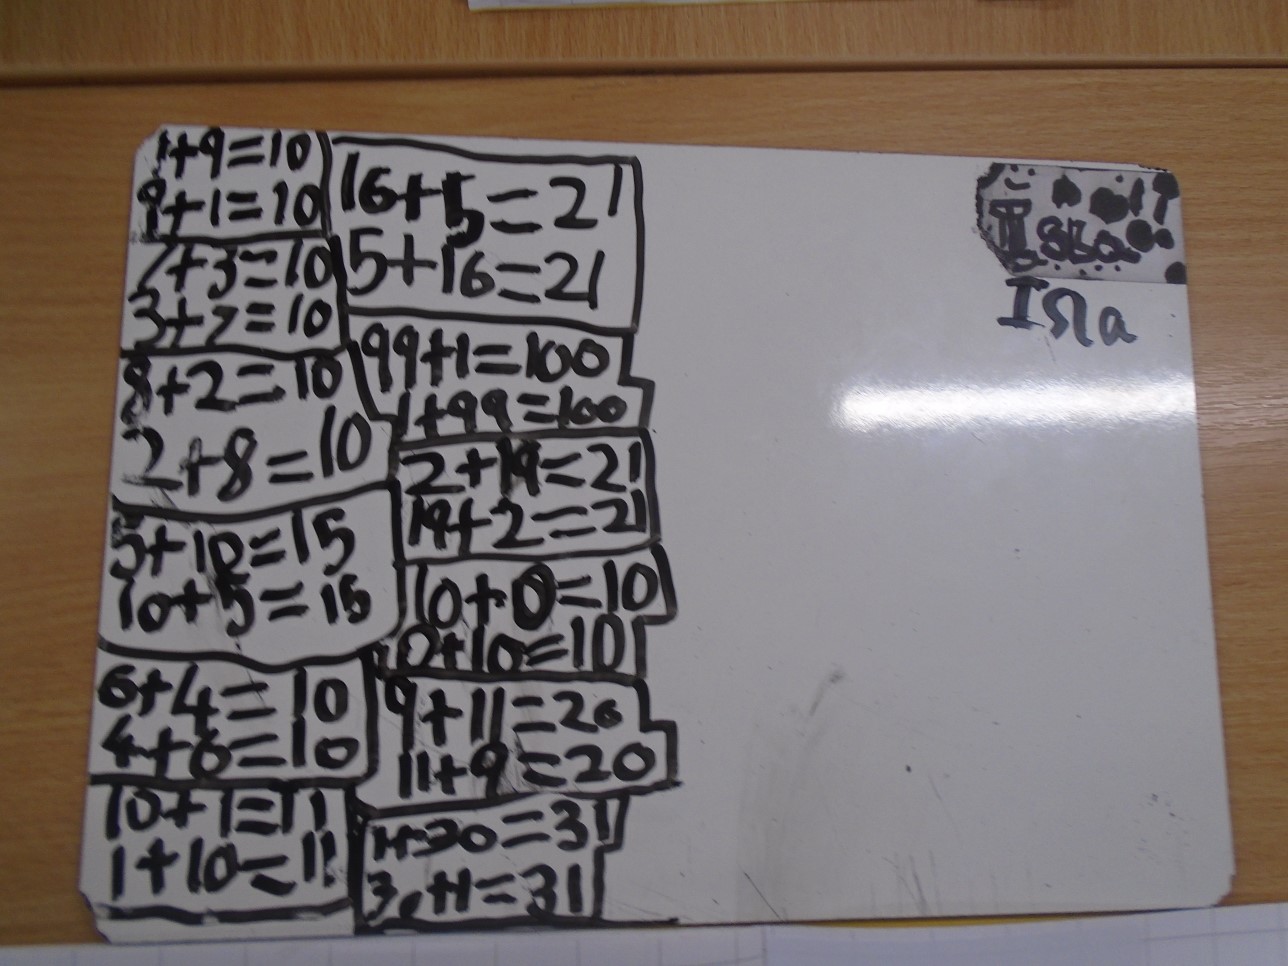 1+9=10
9+1=10
7+3=10
3+7=10
8+2=10
2+8=10
5+10=15
10+5=15
6+4=10
4+6=10
10+1=11
1+10=11
16+5=21
5+16=21
99+1=100
1+99=100
2+19=21
19+2=21
10+0=10
0+10=10
9+11=20
11+9=20
1+30=31
+1=31